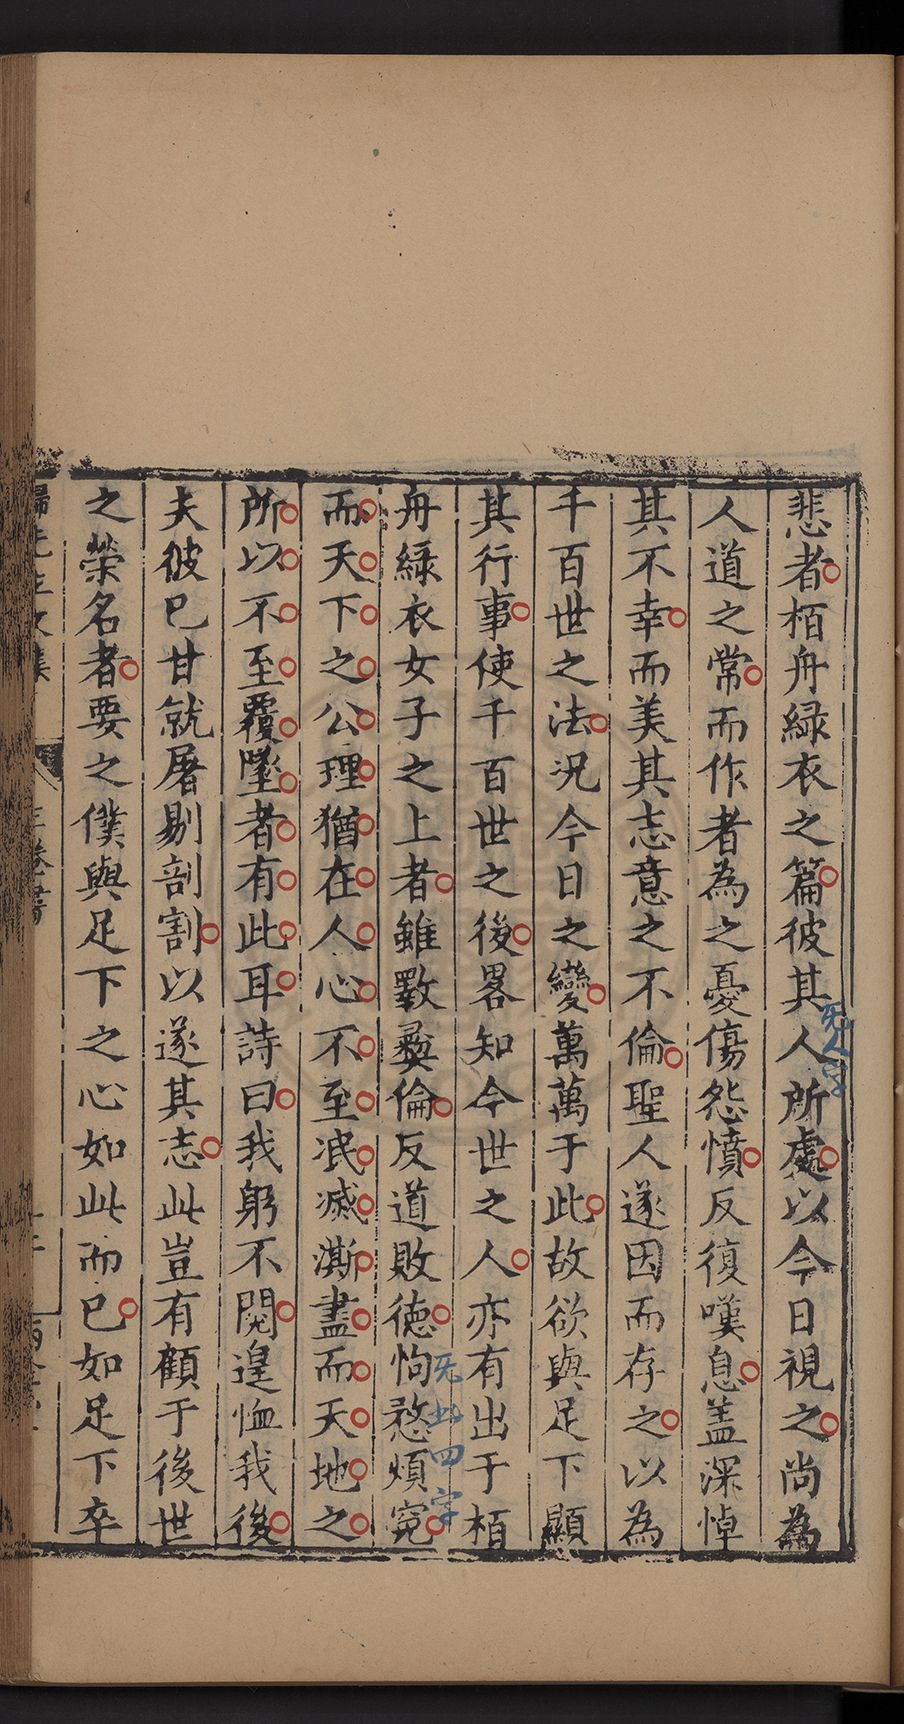 悲者栢舟緑衣之篇彼其人所處以今日視之尚為
无人字
人道之常而作者為之憂傷怨憤反復嘆息盖深悼
其不幸而美其志意之不倫聖人遂因而存之以為
千百世之法况今日之變萬萬于此故欲與足下顯
其行事使千百世之後畧知今世之人亦有出于栢
舟緑衣女子之上者雖斁彜倫反道敗德恂愗煩寃
无此四字
而天下之公理猶在人心不至泯滅澌盡而天地之
所以不至覆墬者有此耳詩曰我躬不閱遑恤我後
夫彼已甘就屠剔剖割以遂其志此豈有顧于後世
之榮名者要之僕與足下之心如此而已如足下卒
歸先生文集
三卷書